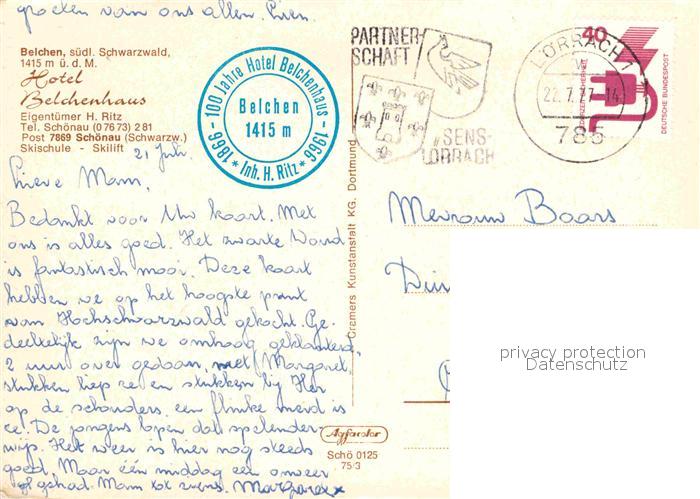 groeten van ons allen. Lien.
Belchen, südl. Schwarzwald,
1415 m ü. d. M.
Hotel
Belchenhaus
Eigentümer H. Ritz
Tel. Schönau (07673) 281
Post 7869 Schönau (Schwarzw.)
Skischule - Skilift
1866 - 100 Jahre Hotel Belchenhaus - 1966
Belchen
1415 m
* Inh. H. Ritz *
PARTNER-
SCHAFT
SENS-
LÖRRACH
LÖRRACH 1
22.7.77-14
785
40
DEUTSCHE BUNDESPOST
21 Juli.
Lieve Mam,
Bedankt voor Uw kaart. Met
ons is alles goed. Het zwarte Woud
is fantastisch mooi. Deze kaart
hebben we op het hoogste punt
van Hochschwarzwald gekocht. Ge-
deeltelijk zijn we omhoog geklauterd,
2 uur over gedaan, met Margaret
stukken liep ze en stukken bij Her
op de schouders. een flinke meid is
ze. De jongens lopen dat spelender-
wijs. Het weer is hier nog steeds
goed. Maar één middag een onweer
gehad. Mam tot ziens. Margaret
Mevrouw Baars
Cramers Kunstanstalt KG. Dortmund
Agfacolor
Schö 0125
75/3
privacy protection
Datenschutz